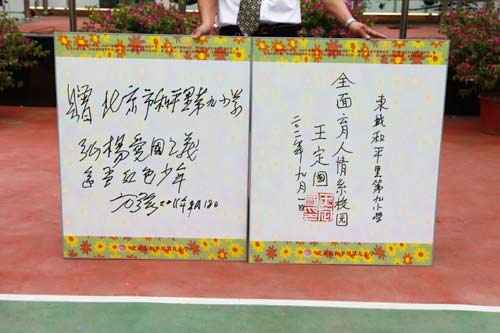 赠 北京市和平里第九小学
弘揚爱國主義
红色少年
2011年9月1日
東城和平里第九小学
全面育人情系校园
王定國
二〇一一年九月一日